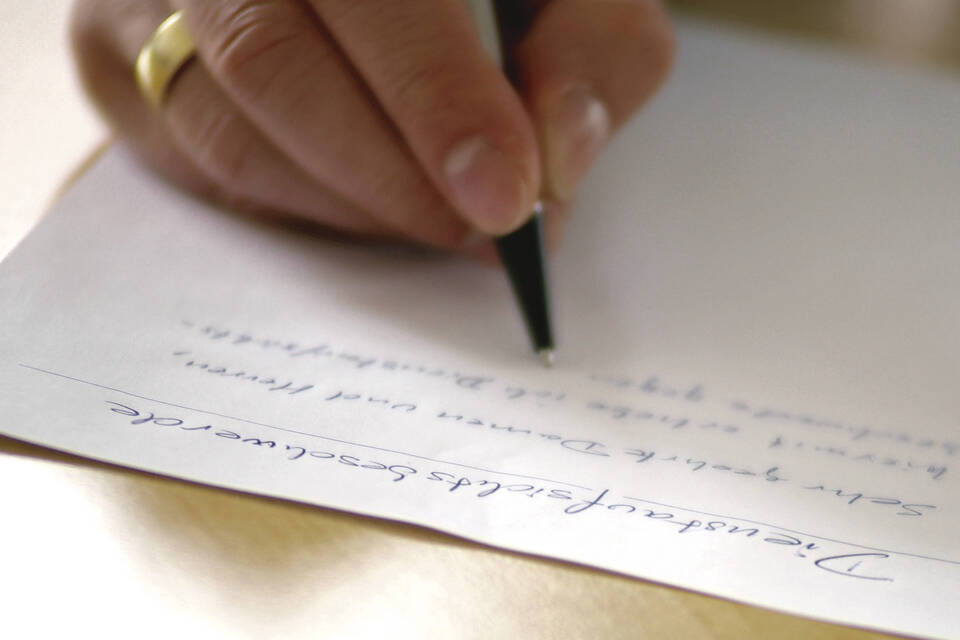 Dienstaufsichtsbeschwerde
Sehr geehrte Damen und Herren,
hiermit erhebe ich Dienstaufsichts-
beschwerde gegen